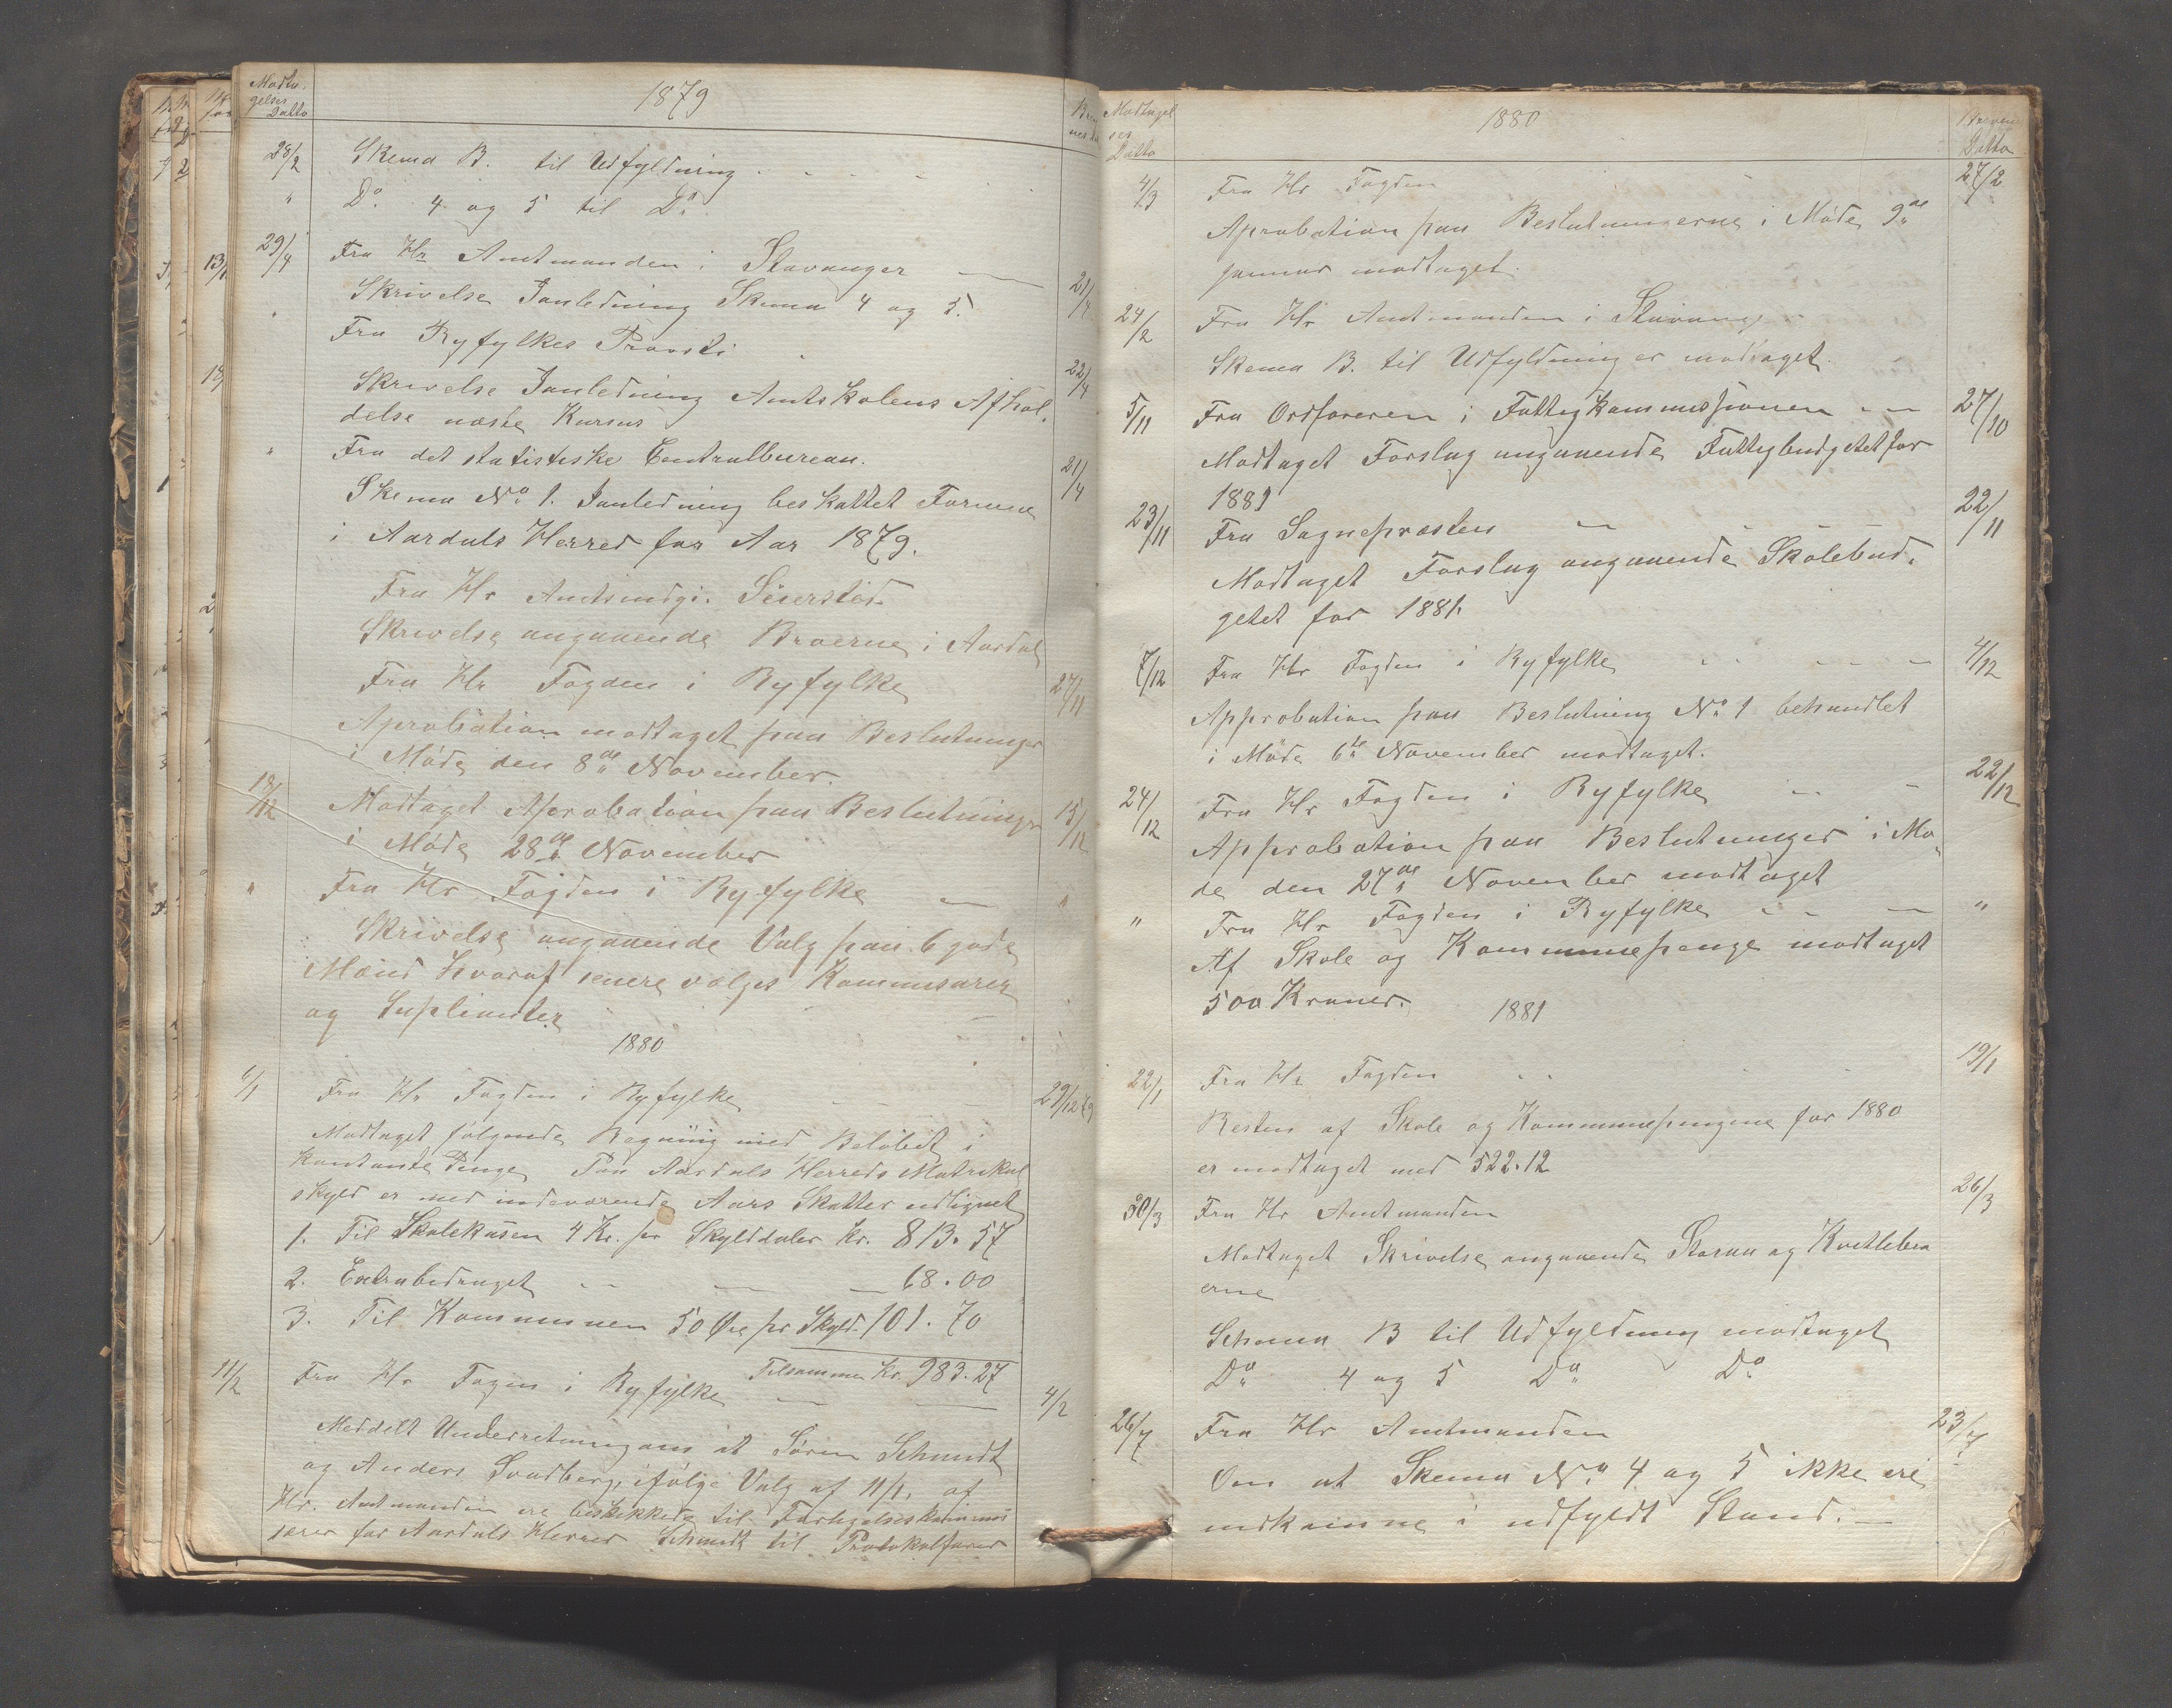 Modta-
gelses
Datto
1879
28/2 Skema B. til Udfyldning
" Do. 4 og 5 til Do.
29/4 Fra Hr Amtmanden i Stavanger 21/4
Skrivelse Janledning Skema 4 og 5.
" Fra Ryfylkes Provsti 22/4
Skrivelse Janledning Amtskolens Afhol-
delse næste Kursus
" Fra det statistiske Centralbureau. 21/4
Skema No 1. Janledning beskattet Formue
i Aardals Herred for Aar 1879.
Fra Hr Amtsindgi. Seiersted
Skrivelse angaaende Broerne i Aardal
Fra Hr Fogden i Ryfylke 27/11
Aprobation modtaget paa Beslutninger
i Møde den 8de November.
18/12 Modtaget Aprobation paa Beslutninger 15/12
i Møde 28de November
" Fra Hr Fogden i Ryfylke "
Skrivelse angaaende Valg paa 6 gode
Mænd hvoraf senere vælges Kommisærer
og Suplianter
1880
6/1 Fra Hr Fogden i Ryfylke 29/12 79
Modtaget følgende Regning med Beløbet i
kontante Penge Paa Aardals Herreds Matrikul
skyld er med indeværende Aars Skatter udlignet
1. Til Skolekasen 4 Kr. pr Skylddaler Kr. 813.57
2. Extrabidraget 68.00
3. Til Kommunen 50 Øre pr Skyld. 101.70
Tilsammen Kr. 983.27
11/2 Fra Hr Fogen i Ryfylke 4/2
Meddelt Underretning om at Sören Schmidt
og Anders Svadberg, ifølge Valg af 11/1, af
Hr. Amtmanden ere beskikkede til Forligelseskommis
særer for Aardals Herred Schmidt til Protokolfører
Modtagel
ses
Datto
1880
Datto
4/3 Fra Hr Fogden 27/2
Aprobation paa Beslutningerne i Møde 9de
januar modtaget.
24/2 Fra Hr Amtmanden i Stavanger
Skema B. til Udfyldning er modtaget.
5/11 Fra Ordføreren i Fattigkommissionen 27/10
Modtaget Forslag angaaende Fattigbudgetet for
1881
23/11 Fra Sognepræsten 22/11
Modtaget Forslag angaaende Skolebud-
getet for 1881.
7/12 Fra Hr Fogden i Ryfylke 4/12
Approbation paa Beslutning No 1 behandlet
i Møde 6te November modtaget.
24/12 Fra Hr Fogden i Ryfylke 22/12
Approbation paa Beslutninger i Mø-
de den 27de November modtaget
" Fra Hr Fogden i Ryfylke "
Af Skole og Kommunepenge modtaget
500 Kroner.
1881
22/1 Fra Hr Fogden 19/1
Resten af Skole og Kommunepengene for 1880
er modtaget med 522.12
30/3 Fra Hr Amtmanden 26/3
Modtaget Skrivelse angaaende Storaa og Kvitlebro
erne
Schema B til Udfyldning modtaget
Do 4 og 5 Do Do
26/7 Fra Hr Amtmanden 23/7
Om at Skema No 4 og 5 ikke ere
indkomne i udfyldt Stand.